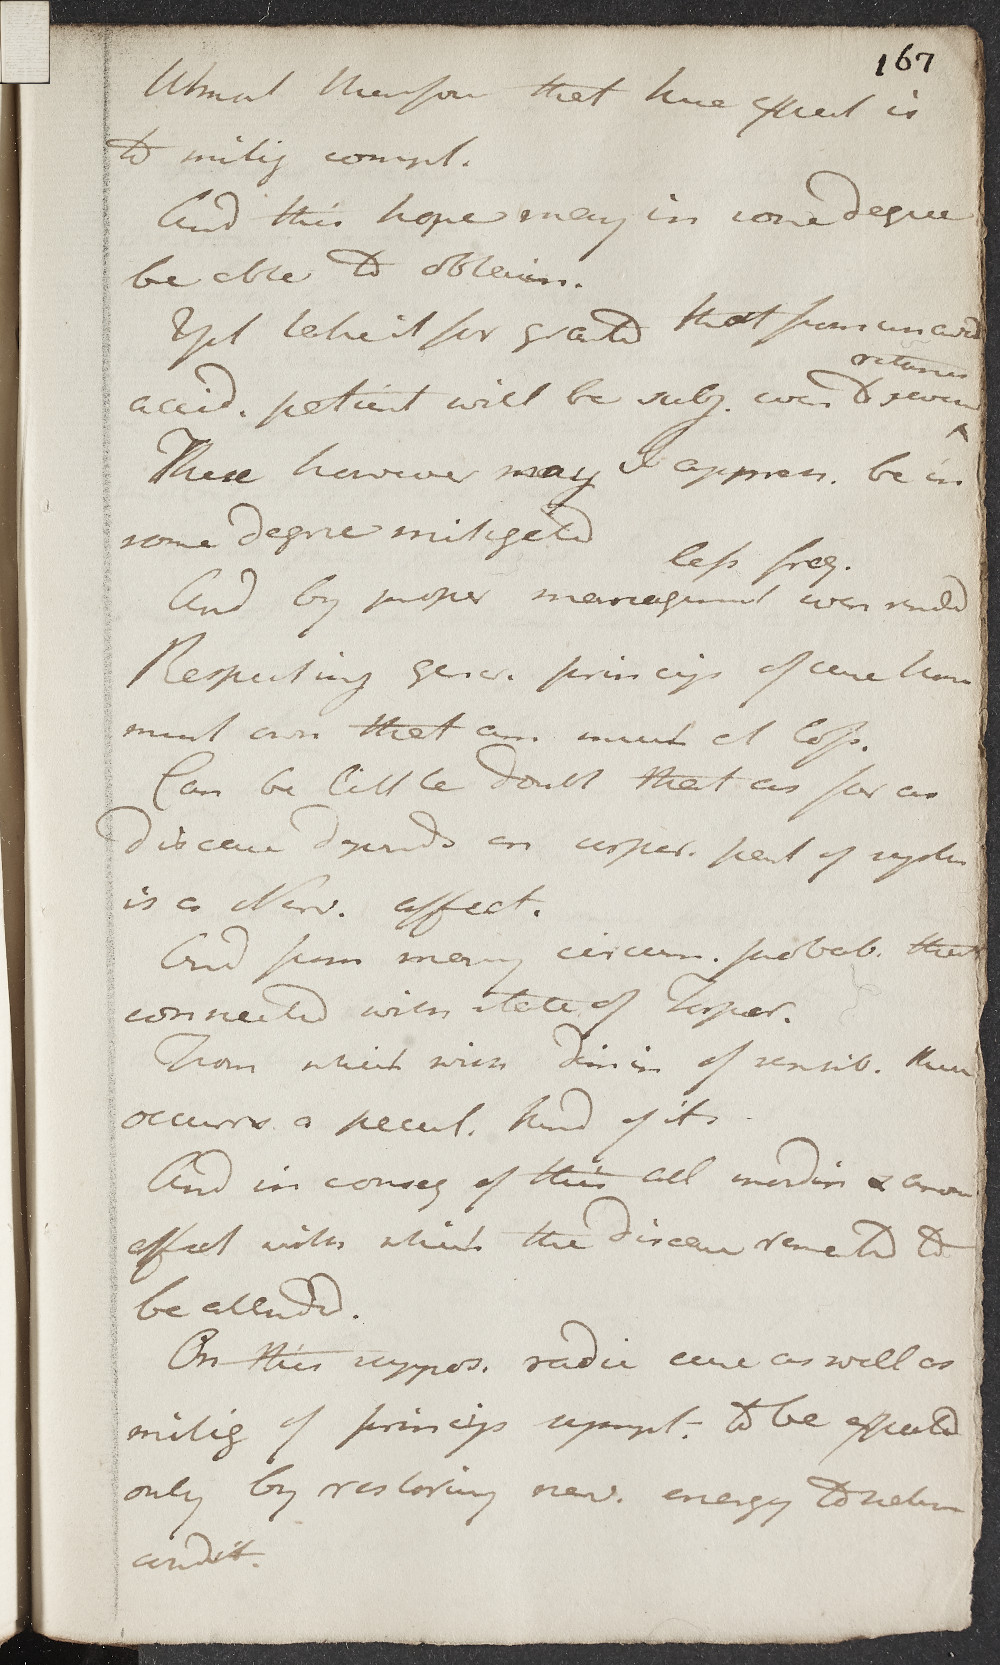 167
Utmost therefore that here expect is
to mitig compl.
And this hope may in some degree
be able to obtain.
Yet take it for granted that from unavoid
accid. patient will be subj. even to severe
returns
These however may I apprehn. be in
some degree mitigated
less freq.
And by proper management even rendd
Respecting gener. princip of cure here
must own that am much at loss.
Can be little doubt that as far as
disease depends on corpor. part of system
is a Nerv. affect.
And from many circum. probab. that
connected with state of Torpor.
From which with dimin of sensib. there
occurrs a pecul. kind of it
And in conseq of this all inordin & anom
affect with which the disease
be attended.
On this suppos. radic cure as well as
mitig of princip sympt. to be expected
only by restoring nerv. energy to natur
condit.